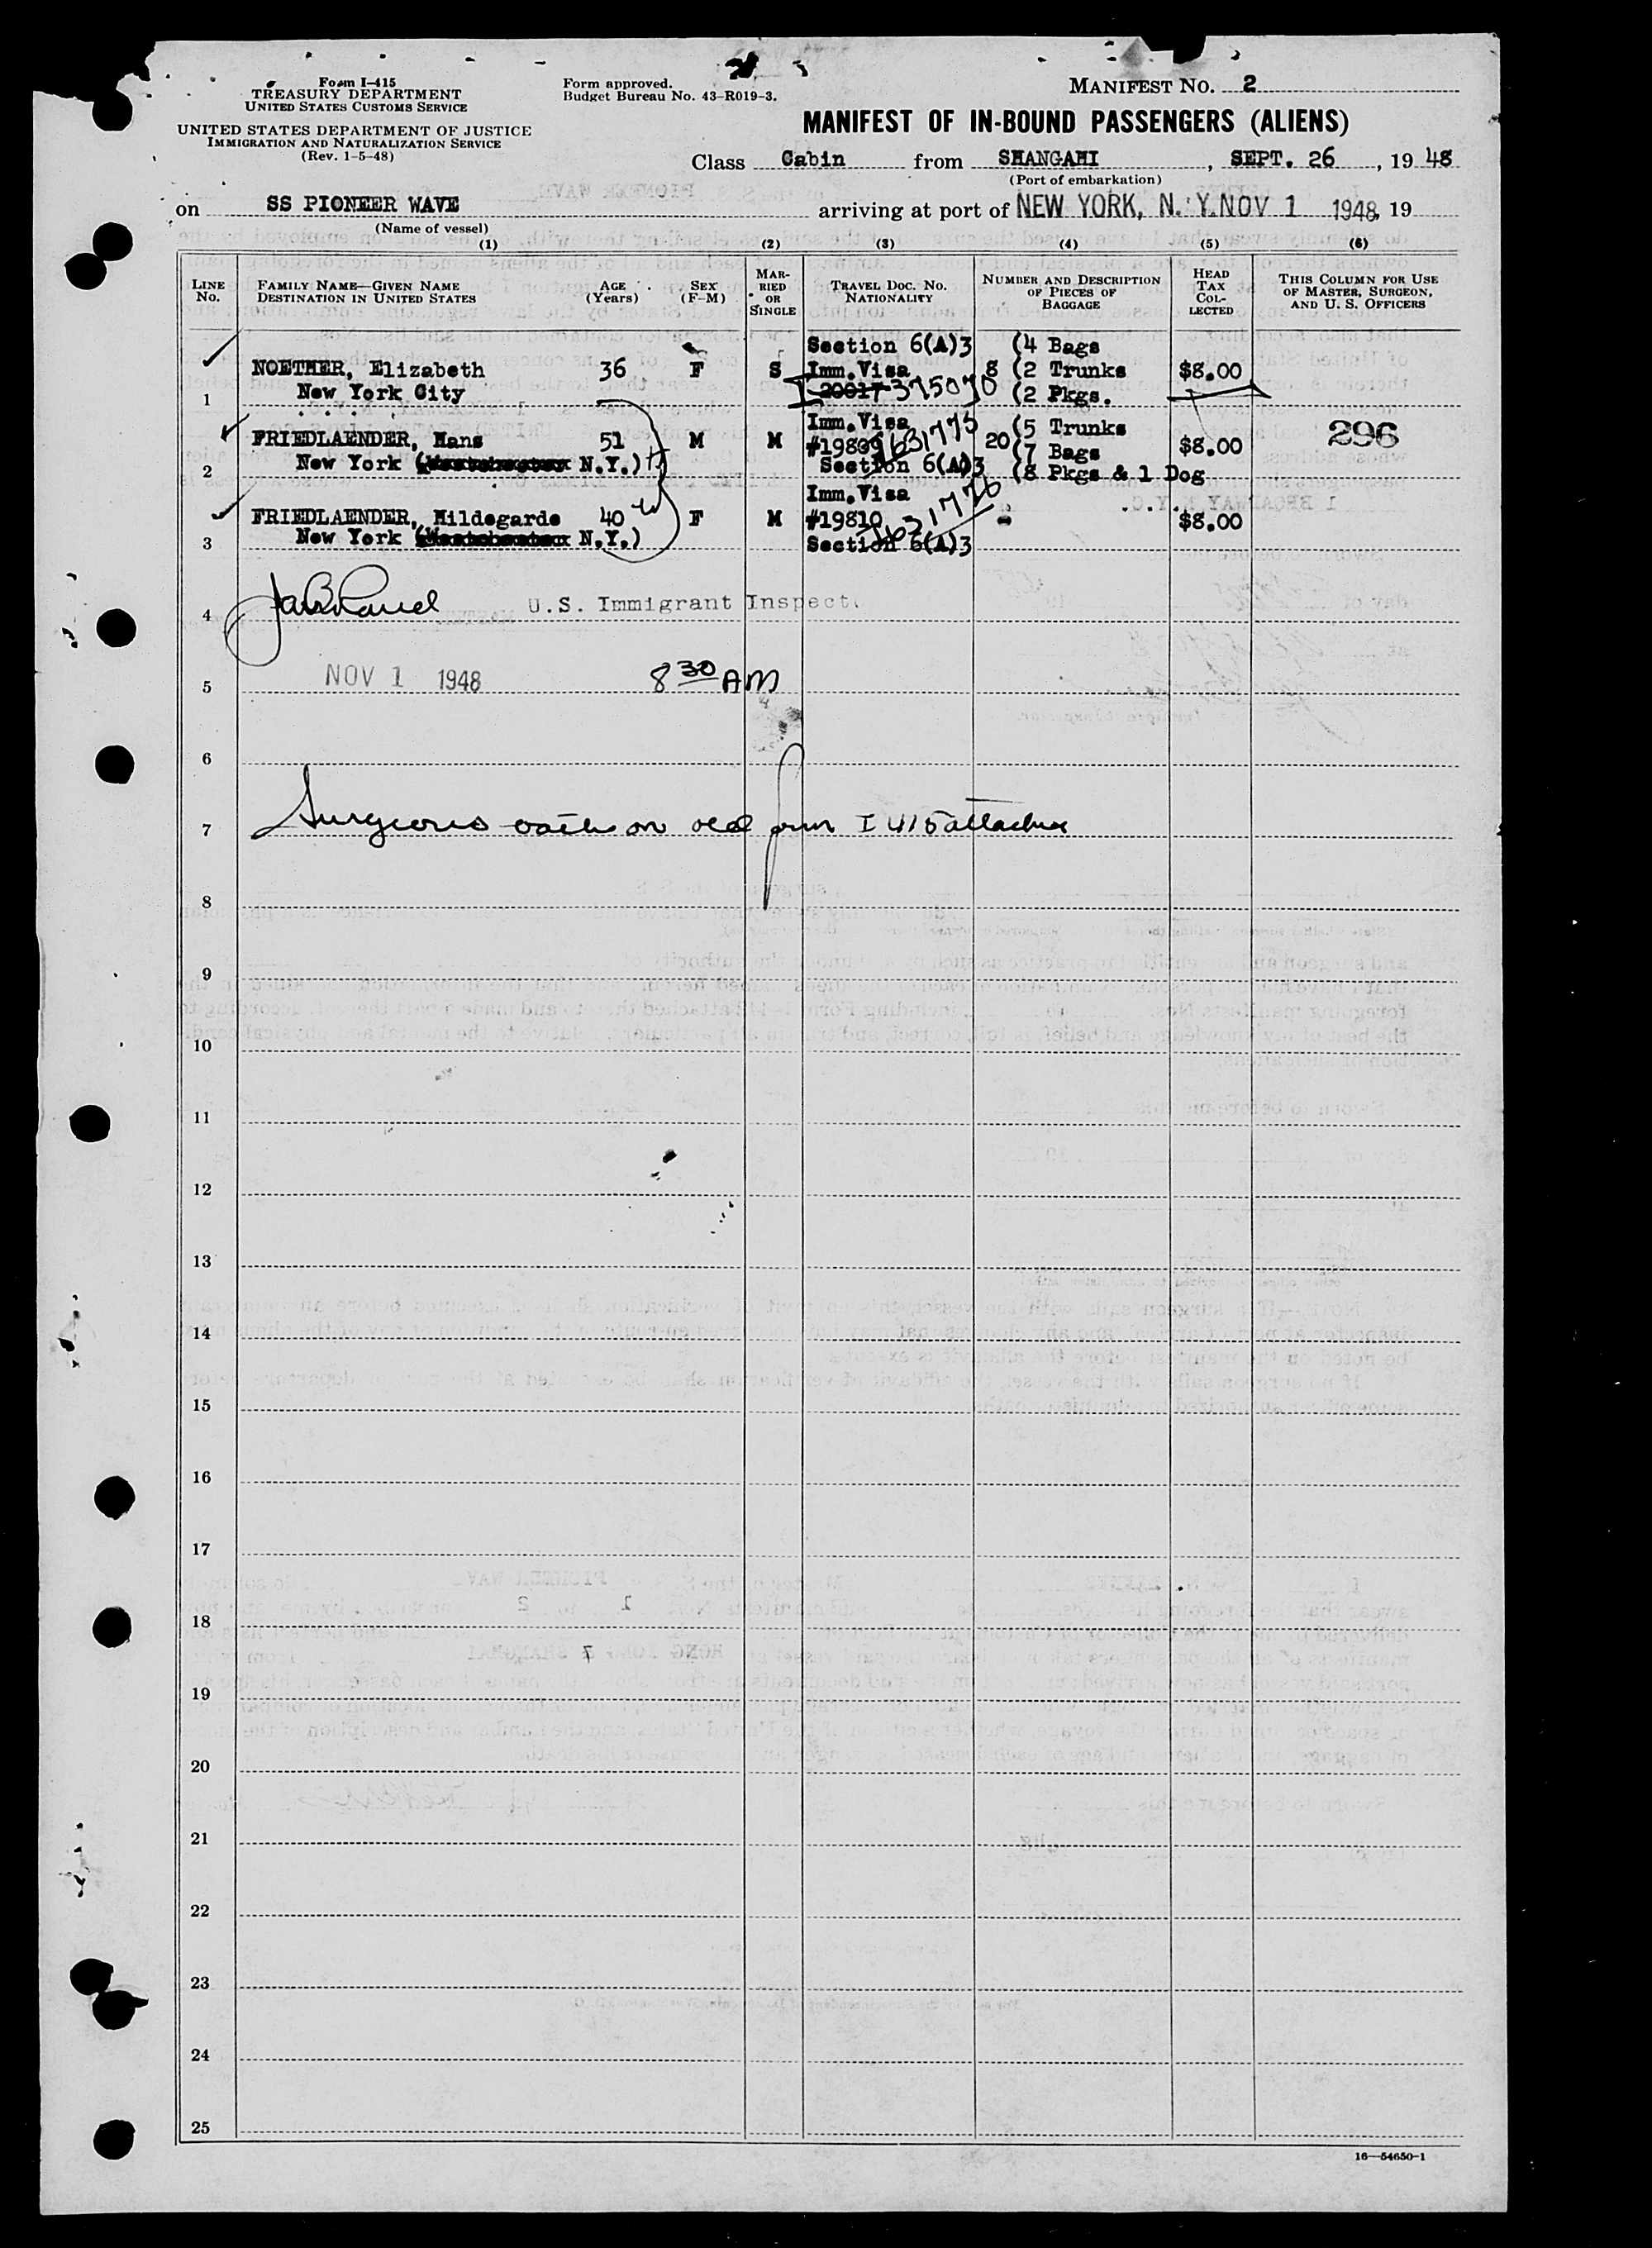 Form I-415
TREASURY DEPARTMENT
UNITED STATES CUSTOMS SERVICE
UNITED STATES DEPARTMENT OF JUSTICE
IMMIGRATION AND NATURALIZATION SERVICE
(Rev. 1-5-48)
Form approved.
Budget Bureau No. 43-R019-3.
MANIFEST NO. 2
MANIFEST OF IN-BOUND PASSENGERS (ALIENS)
Class Cabin from SHANGAHI, SEPT. 26, 19 48
(Port of embarkation)
on SS PIONEER WAVE arriving at port of NEW YORK, N. Y. NOV 1 1948, 19
(Name of vessel)
(1) (2) (3) (4) (5) (6)
LINE No. FAMILY NAME—GIVEN NAME DESTINATION IN UNITED STATES AGE (Years) SEX (F-M) MARRIED OR SINGLE TRAVEL DOC. NO. NATIONALITY NUMBER AND DESCRIPTION OF PIECES OF BAGGAGE HEAD TAX COLLECTED THIS COLUMN FOR USE OF MASTER, SURGEON, AND U. S. OFFICERS
Section 6(A)3 (4 Bags
NOETHER, Elizabeth 36 F S Imm.Visa 8 (2 Trunks $8.00
1 New York City 20017 375070 (2 Pkgs.
Imm.Visa (5 Trunks
FRIEDLAENDER, Hans 51 M M #19809 20 (7 Bags $8.00 296
2 New York ( N.Y.) H Section 6(A)3 (8 Pkgs & 1 Dog
Imm.Visa
FRIEDLAENDER, Hildegarde 40 W F M #19810 $8.00
3 New York ( N.Y.) Section 6(A)3
4 U.S. Immigrant Inspect
5 NOV 1 1948 8 30 AM
6
7 Surgeons oath on old form I 415 attached
8
9
10
11
12
13
14
15
16
17
18
19
20
21
22
23
24
25
16—54650-1